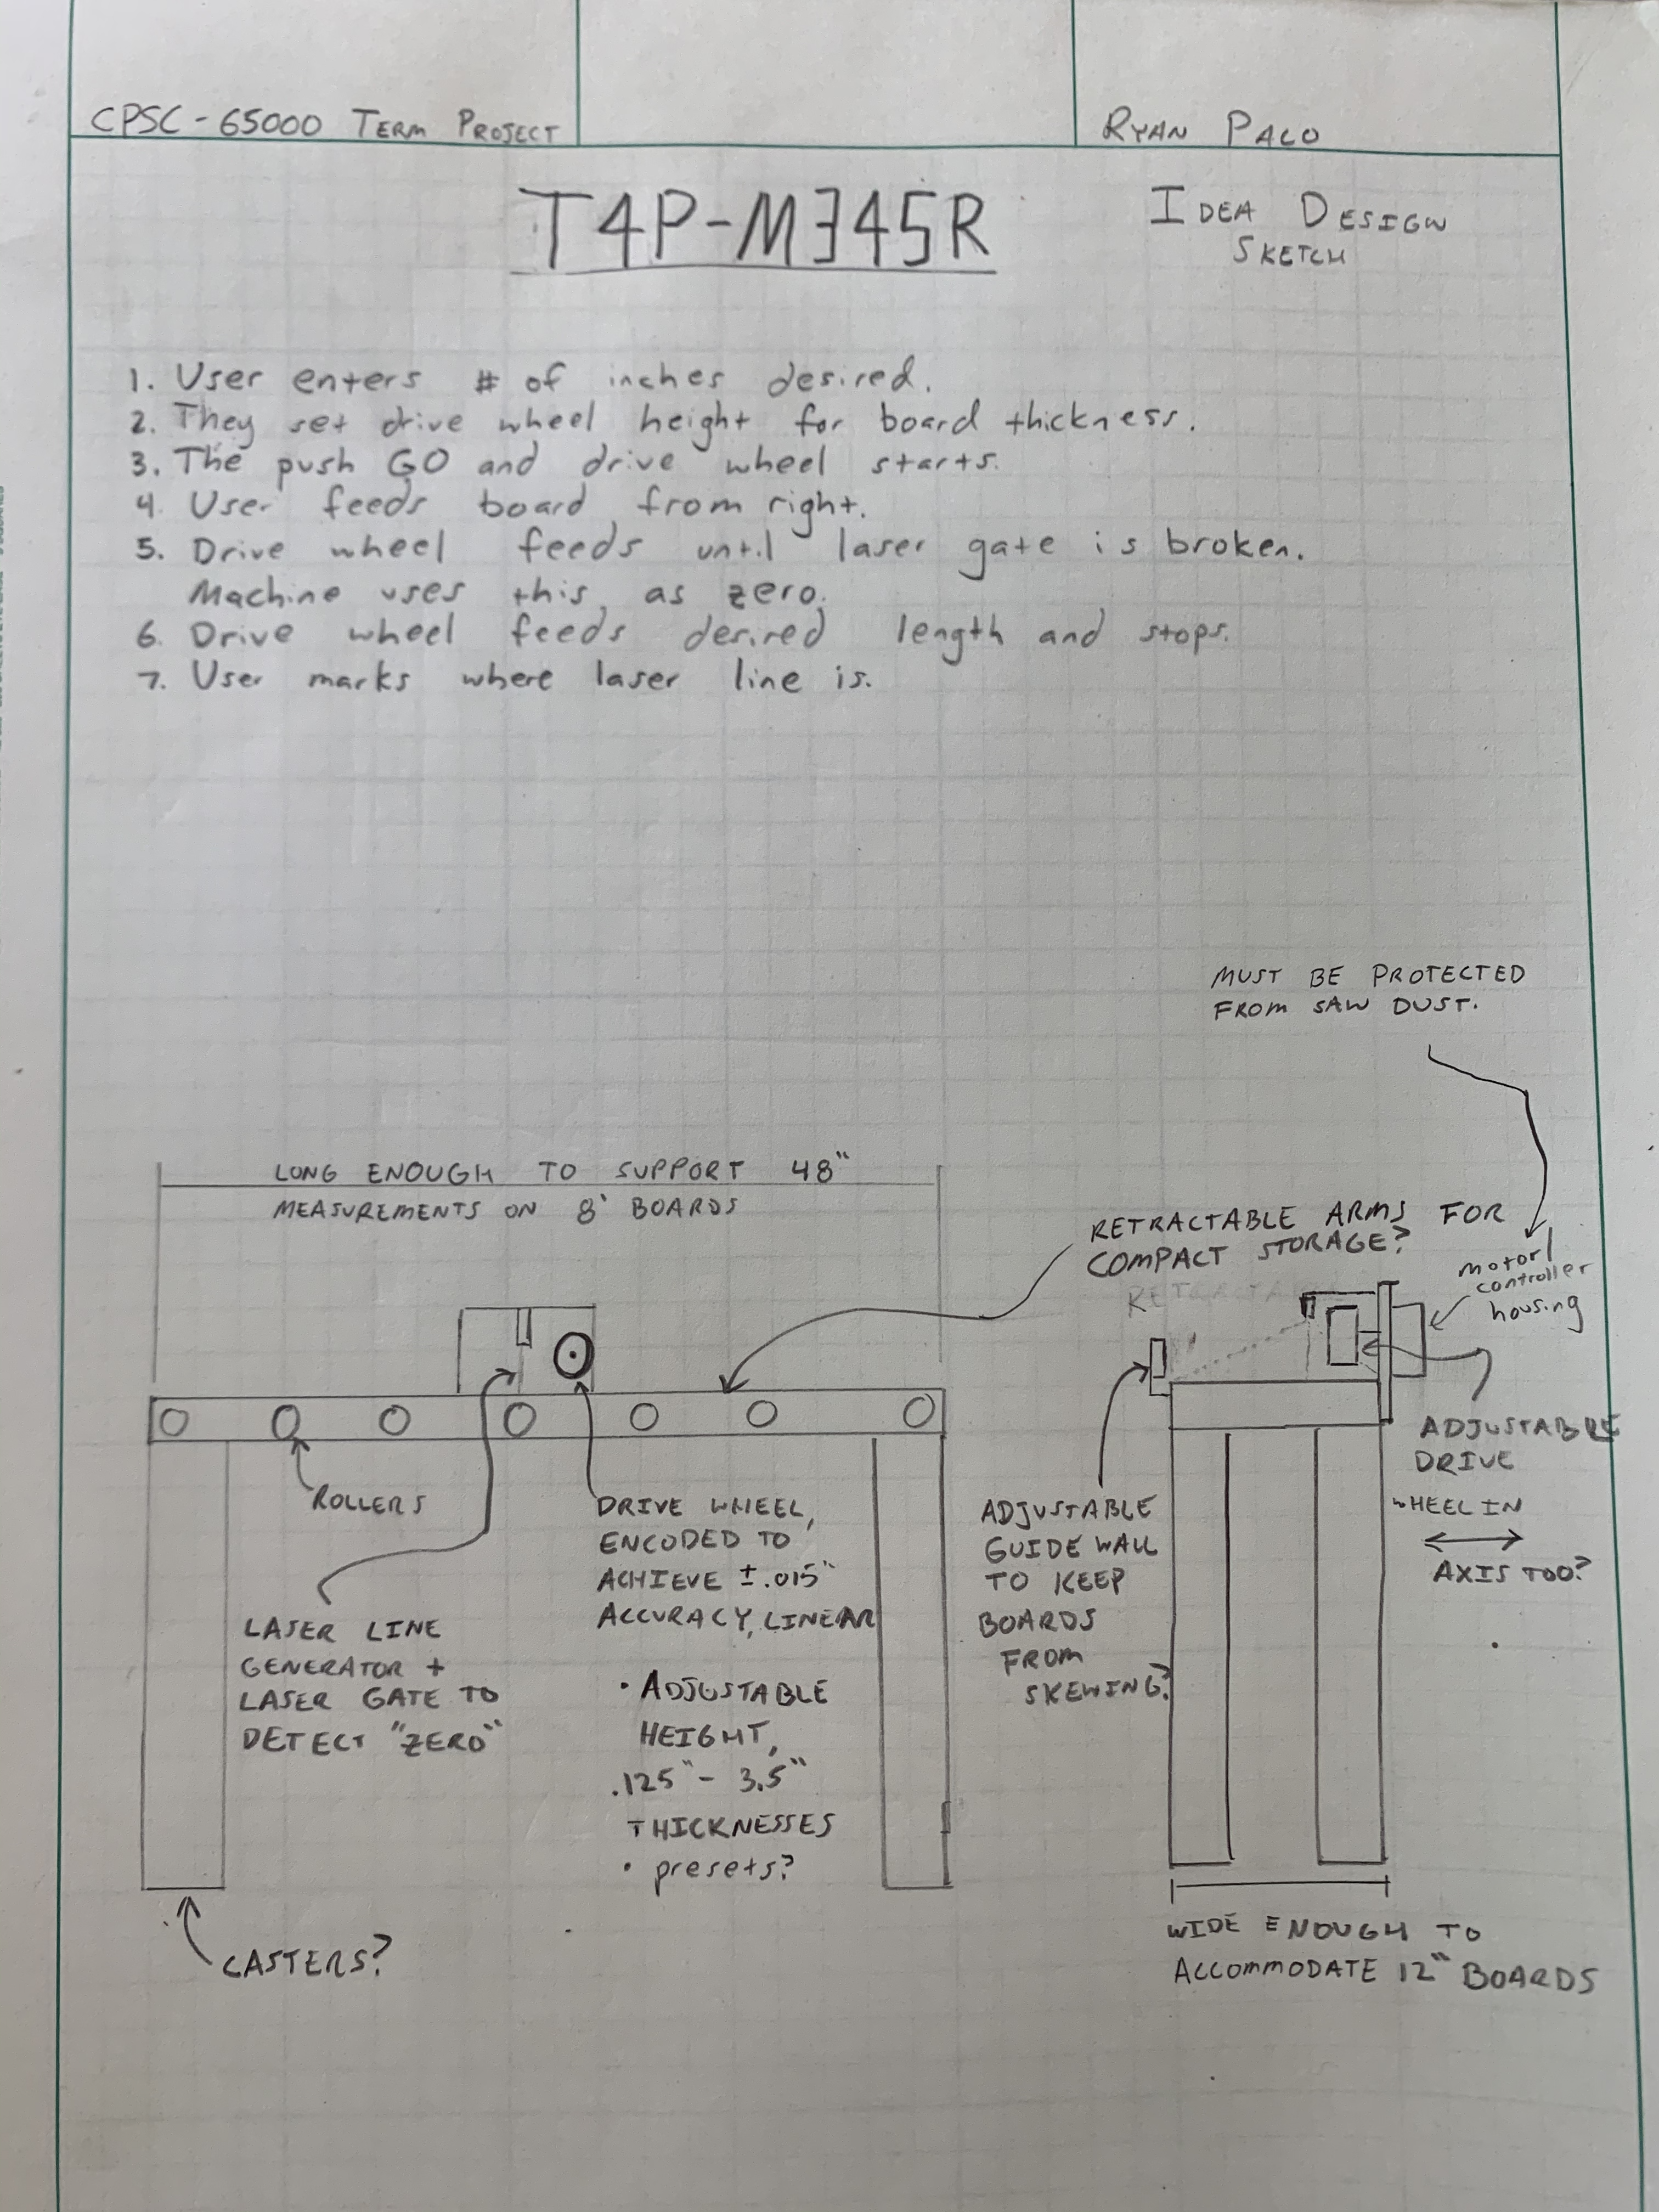 CPSC-65000 TERM PROJECT
RYAN PALO
T4P-M345R
IDEA DESIGN
SKETCH
1. User enters # of inches desired.
2. They set drive wheel height for board thickness.
3. The push GO and drive wheel starts.
4. User feeds board from right.
5. Drive wheel feeds until laser gate is broken.
Machine uses this as zero.
6. Drive wheel feeds desired length and stops.
7. User marks where laser line is.
MUST BE PROTECTED
FROM SAW DUST.
LONG ENOUGH TO SUPPORT 48"
MEASUREMENTS ON 8' BOARDS
RETRACTABLE ARMS FOR
COMPACT STORAGE?
motor/
controller
housing
ROLLERS
LASER LINE
GENERATOR +
LASER GATE TO
DETECT "ZERO"
DRIVE WHEEL,
ENCODED TO
ACHIEVE ±.015"
ACCURACY, LINEAR
• ADJUSTABLE
HEIGHT,
.125" - 3.5"
THICKNESSES
• presets?
ADJUSTABLE
GUIDE WALL
TO KEEP
BOARDS
FROM
SKEWING?
ADJUSTABLE
DRIVE
WHEEL IN
AXIS TOO?
CASTERS?
WIDE ENOUGH TO
ACCOMMODATE 12" BOARDS